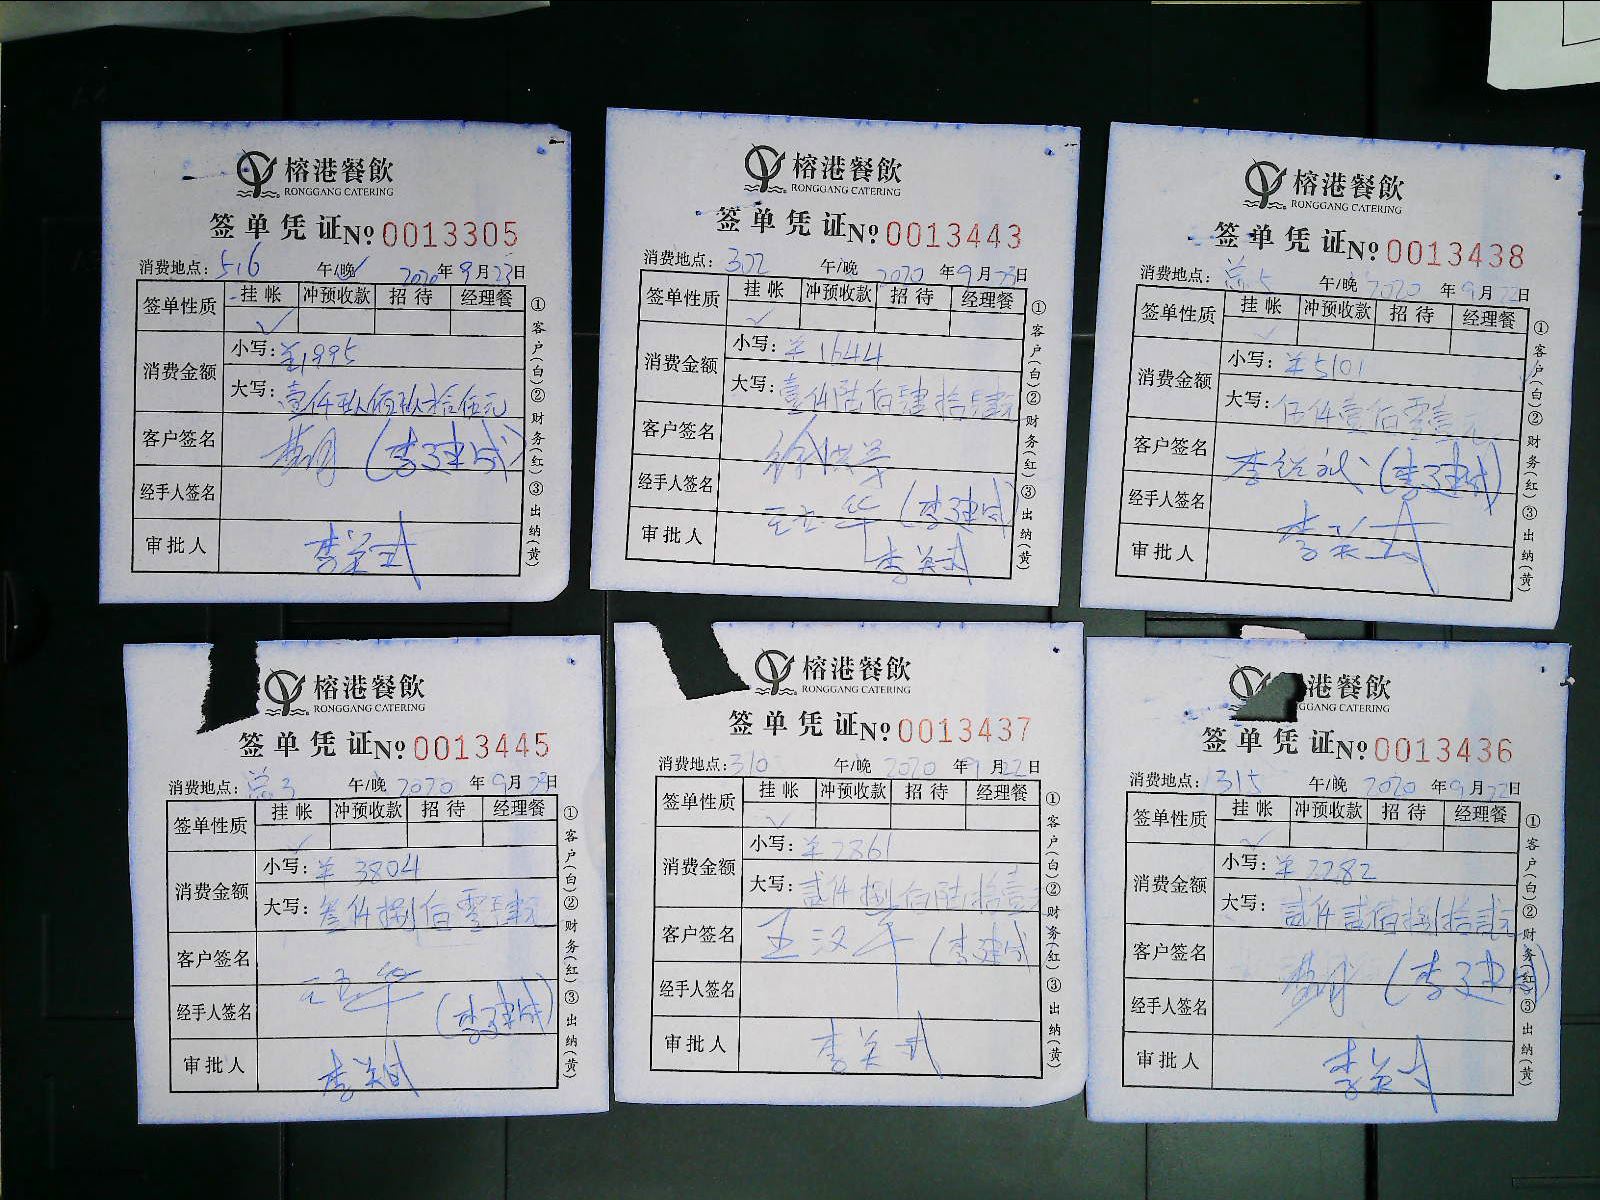 榕港餐飲
RONGGANG CATERING
签单凭证№ 0013305
消费地点: 516 午/晚✓ 2020年9月23日
签单性质 挂帐 冲预收款 招待 经理餐
✓
消费金额 小写: ¥1995
大写:
客户签名 (李建成)
经手人签名
审批人
①客户(白)②财务(红)③出纳(黄)
榕港餐飲
RONGGANG CATERING
签单凭证№ 0013443
消费地点: 322 午/晚 2020年9月23日
签单性质 挂帐 冲预收款 招待 经理餐
✓
消费金额 小写: ¥1644
大写: 壹仟陆佰肆拾肆元
客户签名
经手人签名 (李建成)
审批人
①客户(白)②财务(红)③出纳(黄)
榕港餐飲
RONGGANG CATERING
签单凭证№ 0013438
消费地点: 总5 午/晚 2020年9月22日
签单性质 挂帐 冲预收款 招待 经理餐
✓
消费金额 小写: ¥5101
大写: 伍仟壹佰零壹元
客户签名 (李建成)
经手人签名
审批人
①客户(白)②财务(红)③出纳(黄)
榕港餐飲
RONGGANG CATERING
签单凭证№ 0013445
消费地点: 总3 午/晚 2020年9月23日
签单性质 挂帐 冲预收款 招待 经理餐
✓
消费金额 小写: ¥3804
大写: 叁仟捌佰零肆元
客户签名
经手人签名 (李建成)
审批人
①客户(白)②财务(红)③出纳(黄)
榕港餐飲
RONGGANG CATERING
签单凭证№ 0013437
消费地点: 310 午/晚 2020年9月22日
签单性质 挂帐 冲预收款 招待 经理餐
✓
消费金额 小写: ¥2861
大写: 贰仟捌佰陆拾壹元
客户签名 王汉平 (李建成
经手人签名
审批人
①客户(白)②财务(红)③出纳(黄)
港餐飲
GGANG CATERING
签单凭证№ 0013436
消费地点: 315 午/晚 2020年9月22日
签单性质 挂帐 冲预收款 招待 经理餐
✓
消费金额 小写: ¥2282
大写: 贰仟贰佰捌拾贰元
客户签名 (李建成)
经手人签名
审批人
①客户(白)②财务(红)③出纳(黄)